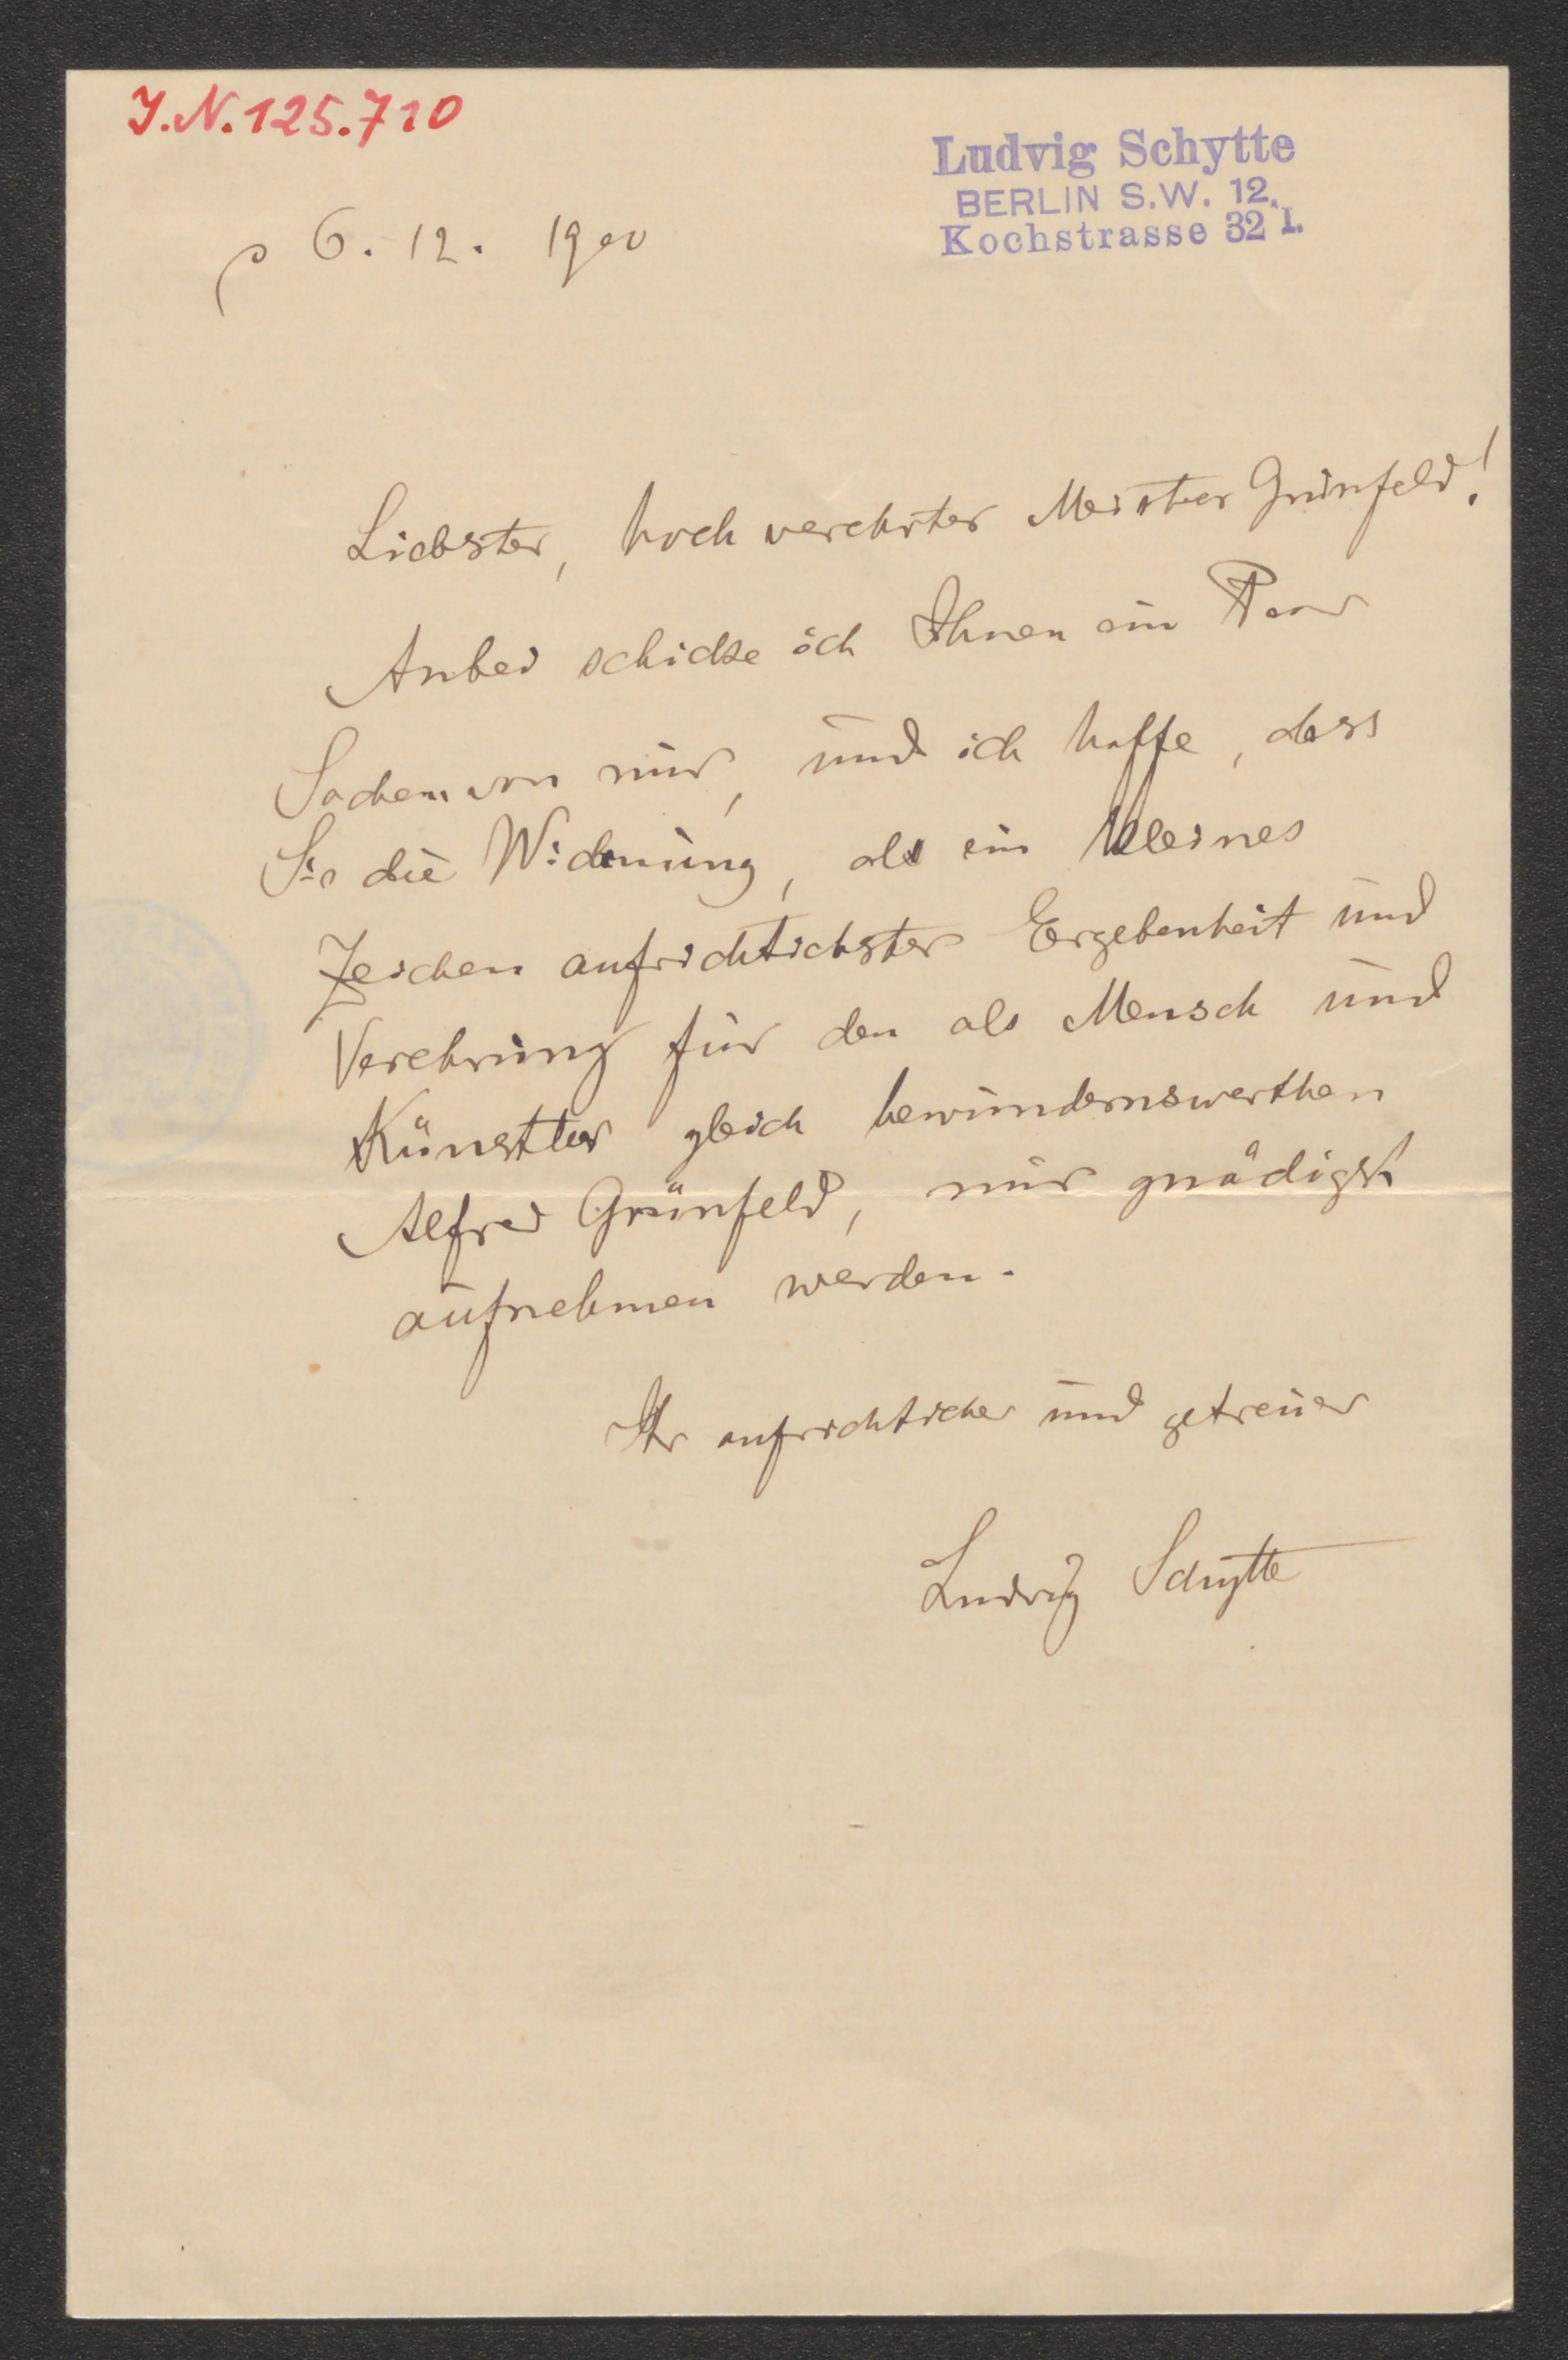 J.N. 125.710
Ludvig Schytte
BERLIN S.W. 12.
Kochstrasse 32 I.
6. 12. 1900
Liebster, hoch verehrter Meister Grünfeld!
Anbei schicke ich Ihnen ein Paar
Sachen von mir, und ich hoffe, dass
Sie die Widmung, als ein kleines
Zeichen aufrichtichster Ergebenheit und
Verehrung für den als Mensch und
Künstler gleich bewundernswerthen
Alfred Grünfeld, mir gnädigst
aufnehmen werden.
Ihr aufrichticher und getreuer
Ludvig Schytte